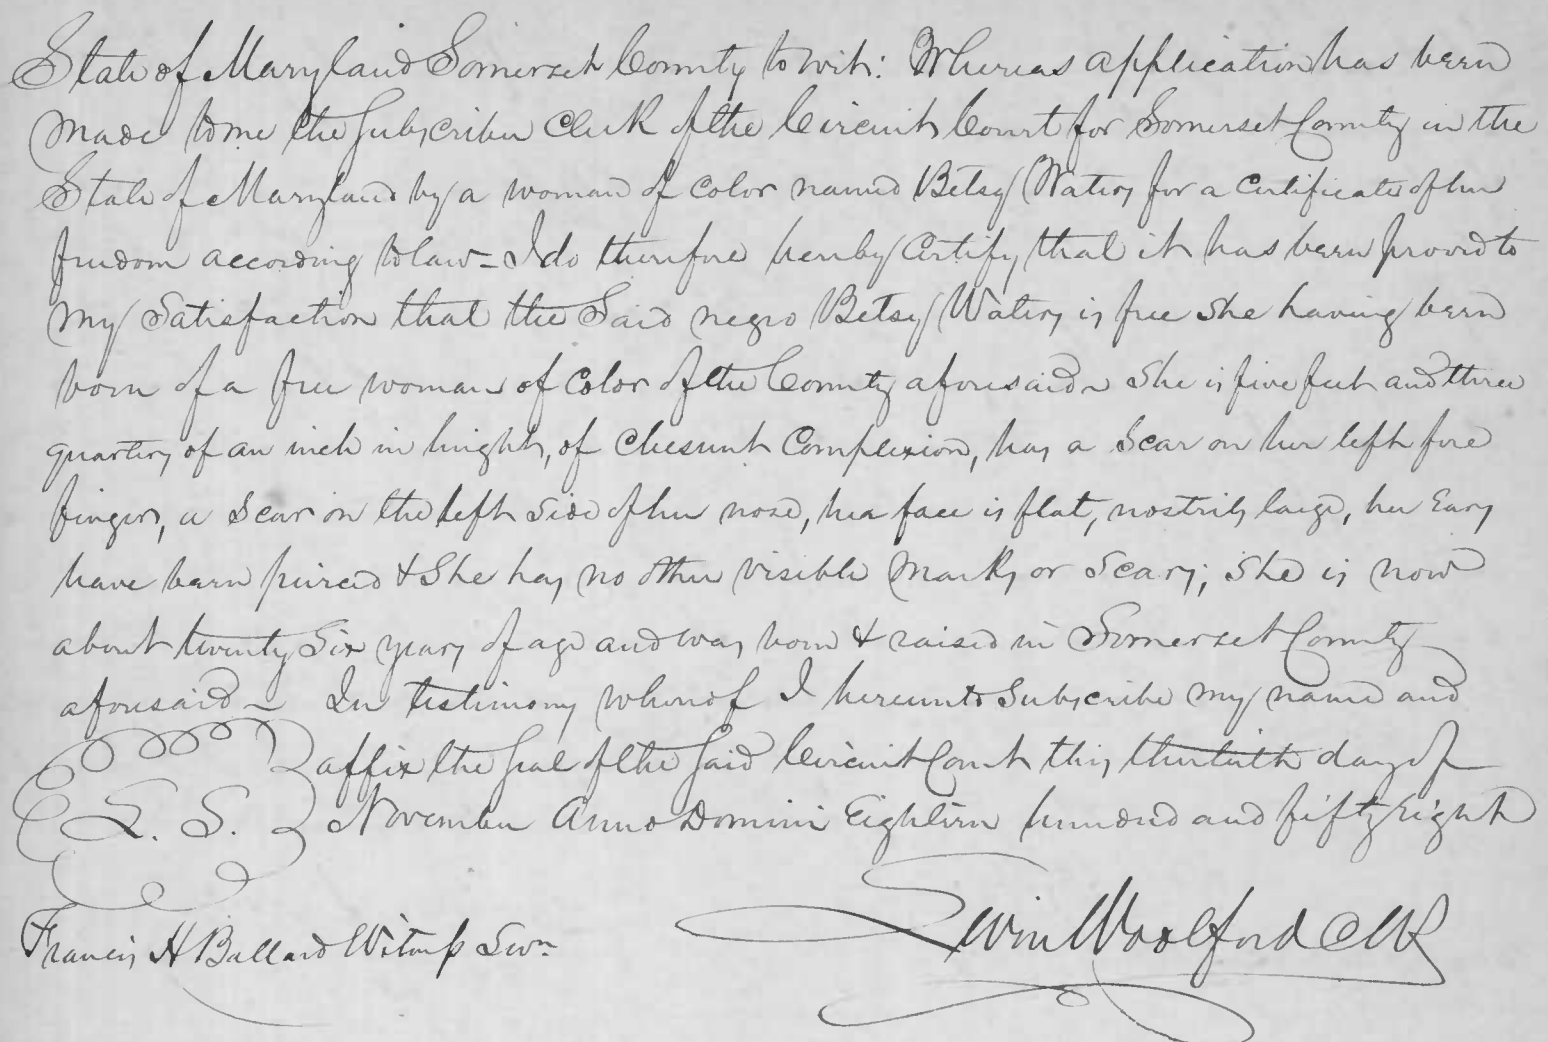 State of Maryland Somerset County to wit: Whereas application has been
made to me the subscriber Clerk of the Circuit Court for Somerset County in the
State of Maryland by a woman of color named Betsy Waters for a certificate of her
freedom according to law – I do therefore hereby certify that it has been proved to
my satisfaction that the said negro Betsy Waters is free she having been
born of a free woman of color of the County aforesaid ~ she is five feet and three
quarters of an inch in hight, of Chesunt Complexion, has a scar on her left fore
finger, a scar on the left side of her nose, her face is flat, nostrils large, her Ears
have been peirced & she has no other visible marks or scars; she is now
about twenty six years of age and was born & raised in Somerset County
aforesaid ~ In testimony whereof I hereunto subscribe my name and
affix the seal of the said Circuit Court this thirtieth day of
L. S. November Anno Domini Eighteen hundred and fifty eight
Levin Woolford Clk
Francis H Ballard Witness Swn